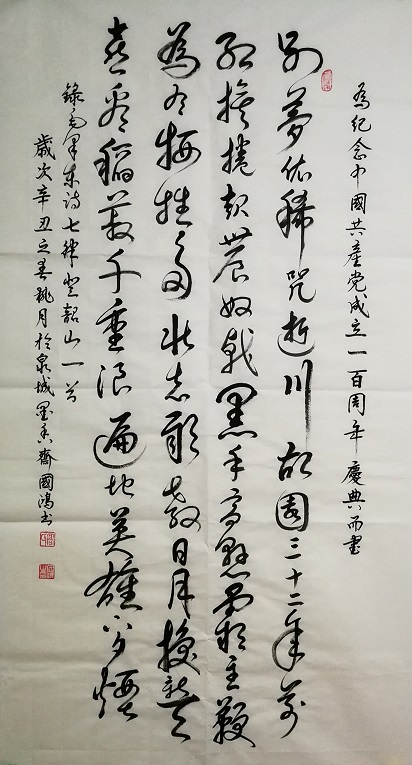 為紀念中國共產党成立一百周年慶典而書
别夢依稀咒逝川故園三十二年前
红旗捲起農奴戟黑手高懸霸主鞭
為有牺牲多壮志敢教日月换新天
喜看稻菽千重浪遍地英雄下夕煙
錄毛泽東詩七律登韶山一首
歲次辛丑之春桃月於泉城墨香齋國鴻书